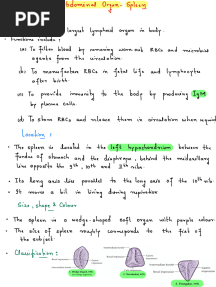 PDF
Abdominal Organ - Spleen
largest lymphoid organ in body.
Functions include :
(a) To filter blood by removing worn out RBCs and microbial
agents from the circulation.
(b) To manufacture RBCs in fetal life and lymphocytes
after birth.
(c) To provide immunity to the body by producing IgM
by plasma cells.
(d) To store RBCs and release them in circulation when requir
Location :
The spleen is located in the left hypochondrium between the
fundus of stomach and the diaphragm, behind the midaxillary
line opposite the 9th, 10th and 11th ribs
Its long axis lies parallel to the long axis of the 10th rib
It moves a bit in living during respiration
Size, shape & Colour
The spleen is a wedge-shaped soft organ with purple colour.
The size of spleen roughly corresponds to the fist of
the subject.
Classification :